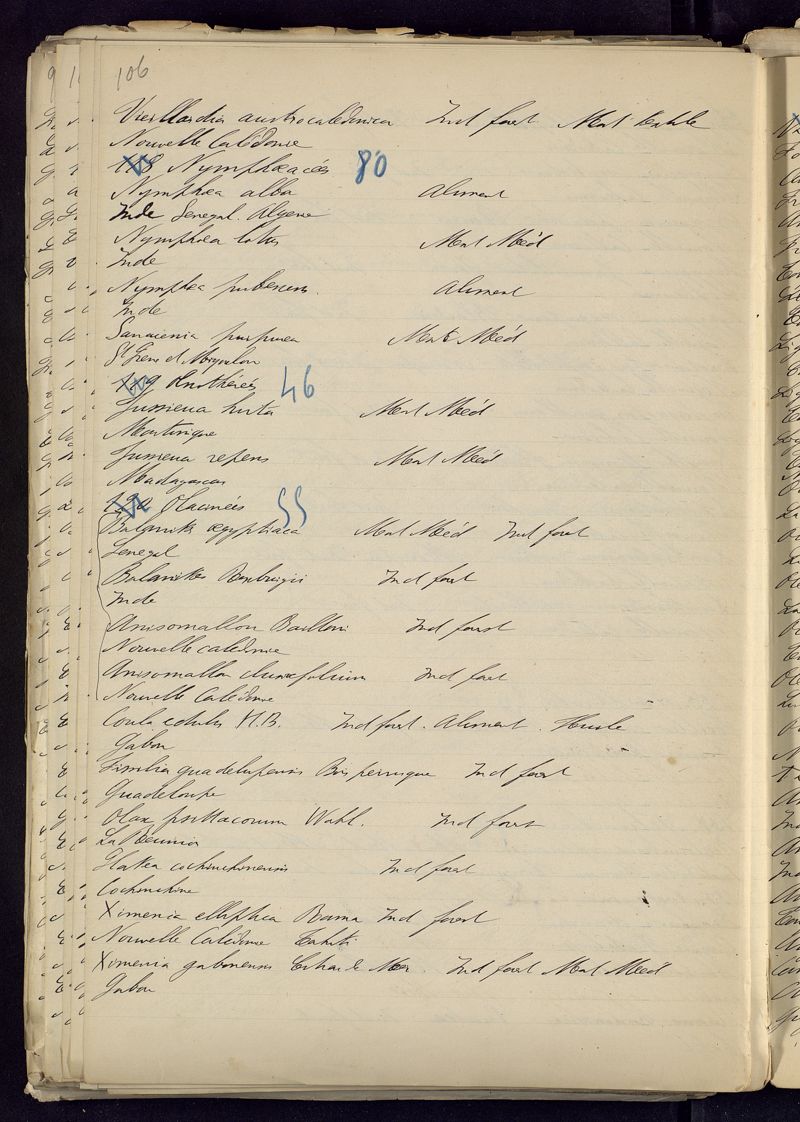 106
Vieillardia austrocaledonica Ind forest Mat textile
Nouvelle Calédonie
118 Nympheacées 80
Nymphea alba Aliment
Inde Senegal. Algerie
Nymphea lotus Mat Méd
Inde
Nymphea pubescens. Aliment
Inde
purpurea Mat Méd
St Pierre et Miquelon
119 Onothérées 46
Jussieua hirta Mat Méd
Martinique
Jussieua repens Mat Méd
Madagascar
120 Olacinées 55
Balanites ægyptiaca Mat Méd Ind forest
Senegal
Balanites Roxburgii Ind forest
Inde
Anisomallon Bailloni Ind forest
Nouvelle calédonie
Anisomallon clusiæfolium Ind forest
Nouvelle Calédonie
Coula edulis H.B. Ind forest. Aliment. Huile
Gabon
guadelupensis Bois perruque Ind forest
Guadeloupe
Olax psittacorum Wahl. Ind forest
La Réunion
cochinchinensis Ind forest
Cochinchine
Ximenia elliptica Rama Ind forest
Nouvelle Calédonie Tahiti
Ximenia gabonensis de Mer. Ind forest Mat Méd
Gabon